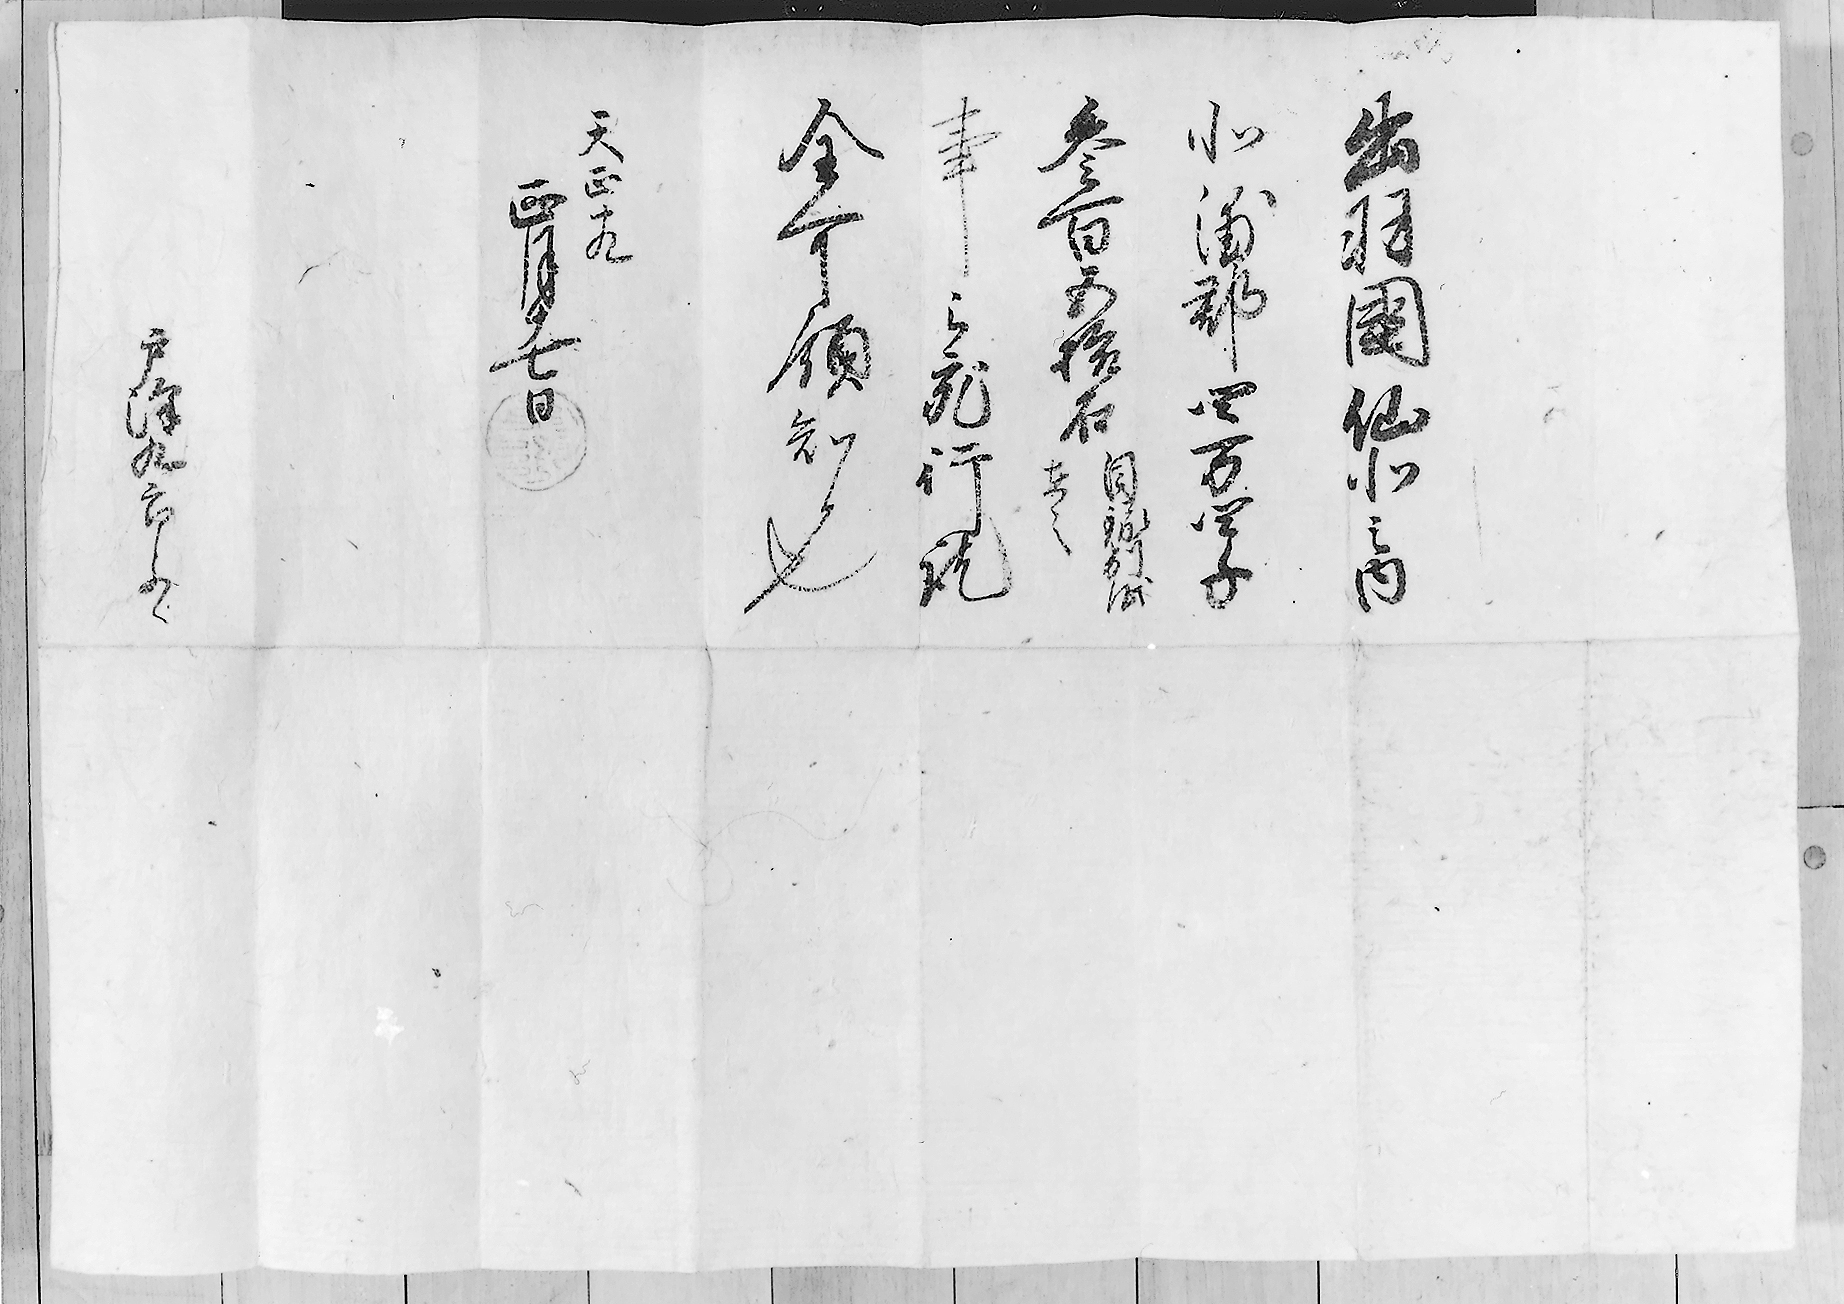 出羽國仙北之内
北浦郡四万四千
参百五拾石 目録別紙
在之
事令宛行訖
全可領知也
天正十九
正月十七日
戸澤九郎とのへ